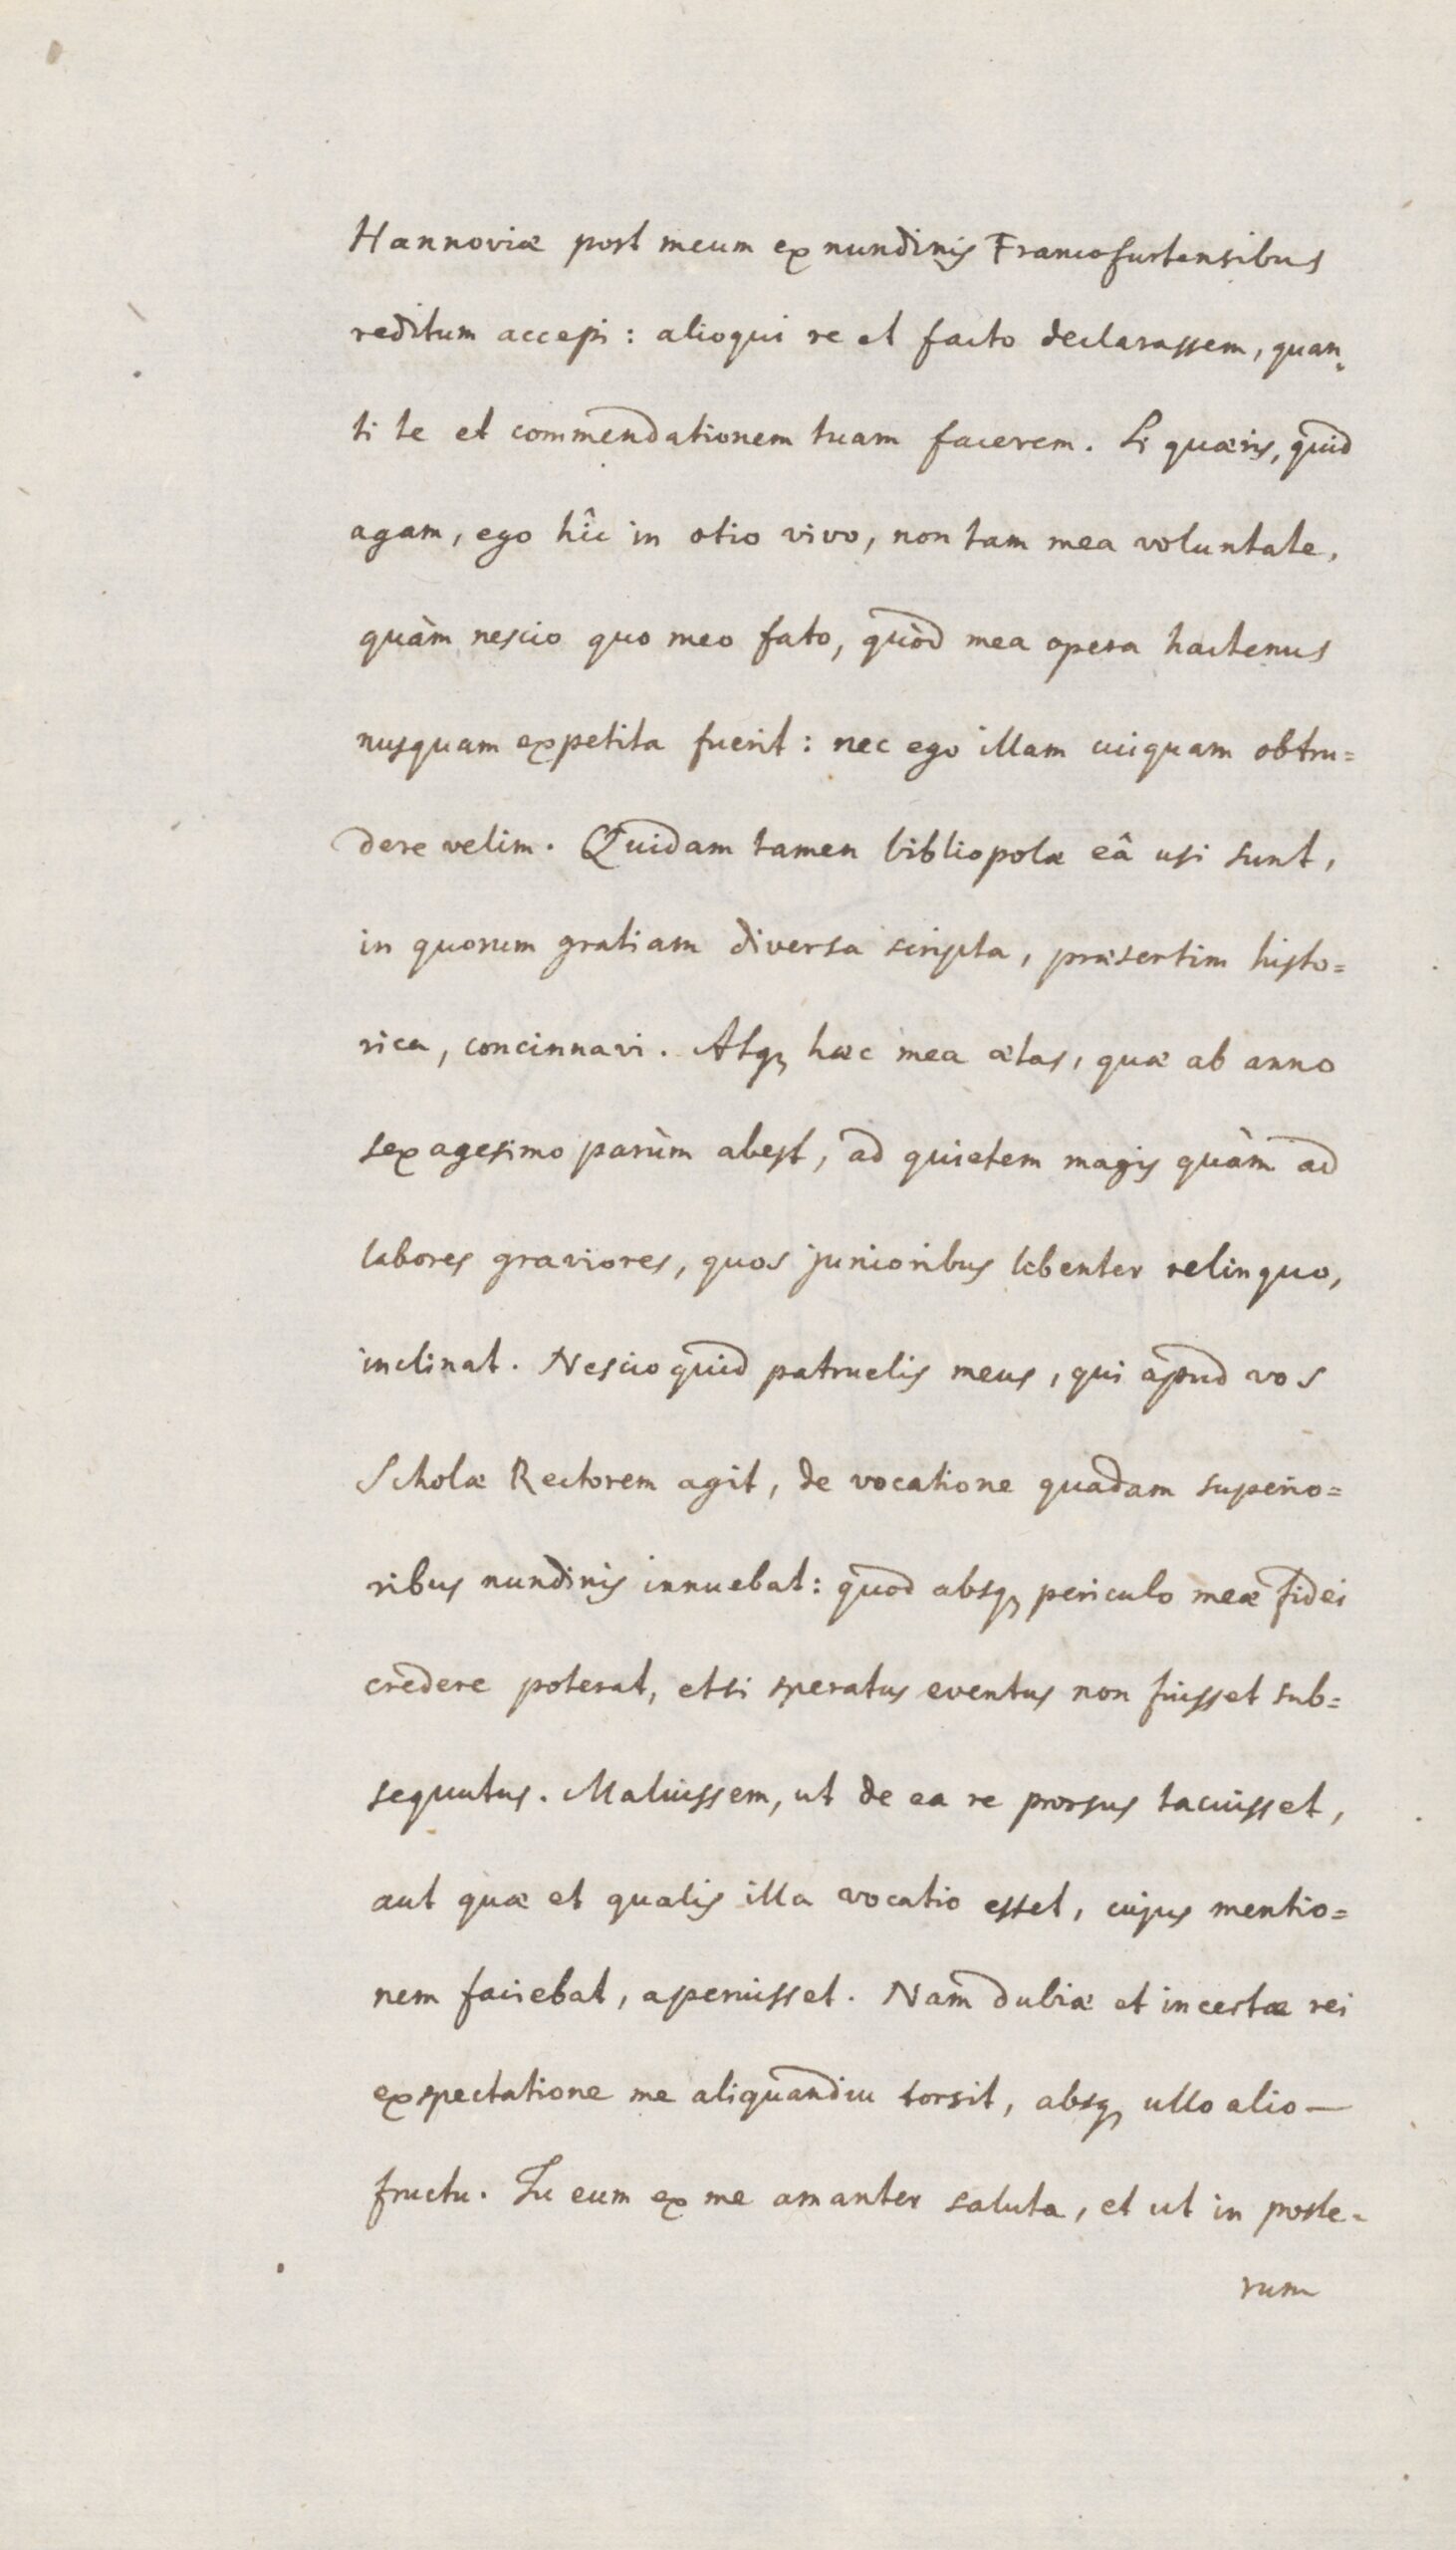 Hannoviæ post meum ex nundinis Francofurtensibus
reditum accepi: alioqui re et facto declarassem, quan=
ti te et commendationem tuam facerem. Si quæris, quid
agam, ego hîc in otio vivo, non tam mea voluntate,
quàm nescio quo meo fato, quòd mea opera hactenus
nusquam expetita fuerit: nec ego illam cuiquam obtru=
dere velim. Quidam tamen bibliopolæ eâ usi sunt,
in quorum gratiam diversa scripta, præsertim histo=
rica, concinnavi. Atq; hæc mea ætas, quæ ab anno
sexagesimo parùm abest, ad quietem magis quàm ad
labores graviores, quos junioribus libenter relinquo,
inclinat. Nescio quid patruelis meus, qui apud vos
Scholæ Rectorem agit, de vocatione quadam superio=
ribus nundinis innuebat: quod absq; periculo meæ fidei
credere poterat, etsi speratus eventus non fuisset sub=
sequutus. Maluissem, ut de ea re prorsus tacuisset,
aut quæ et qualis illa vocatio esset, cujus mentio=
nem faciebat, aperuisset. Nam dubiæ et incertæ rei
exspectatione me aliquandiu torsit, absq; ullo alio —
fructu. Tu eum ex me amanter saluta, et ut in poste-
rum